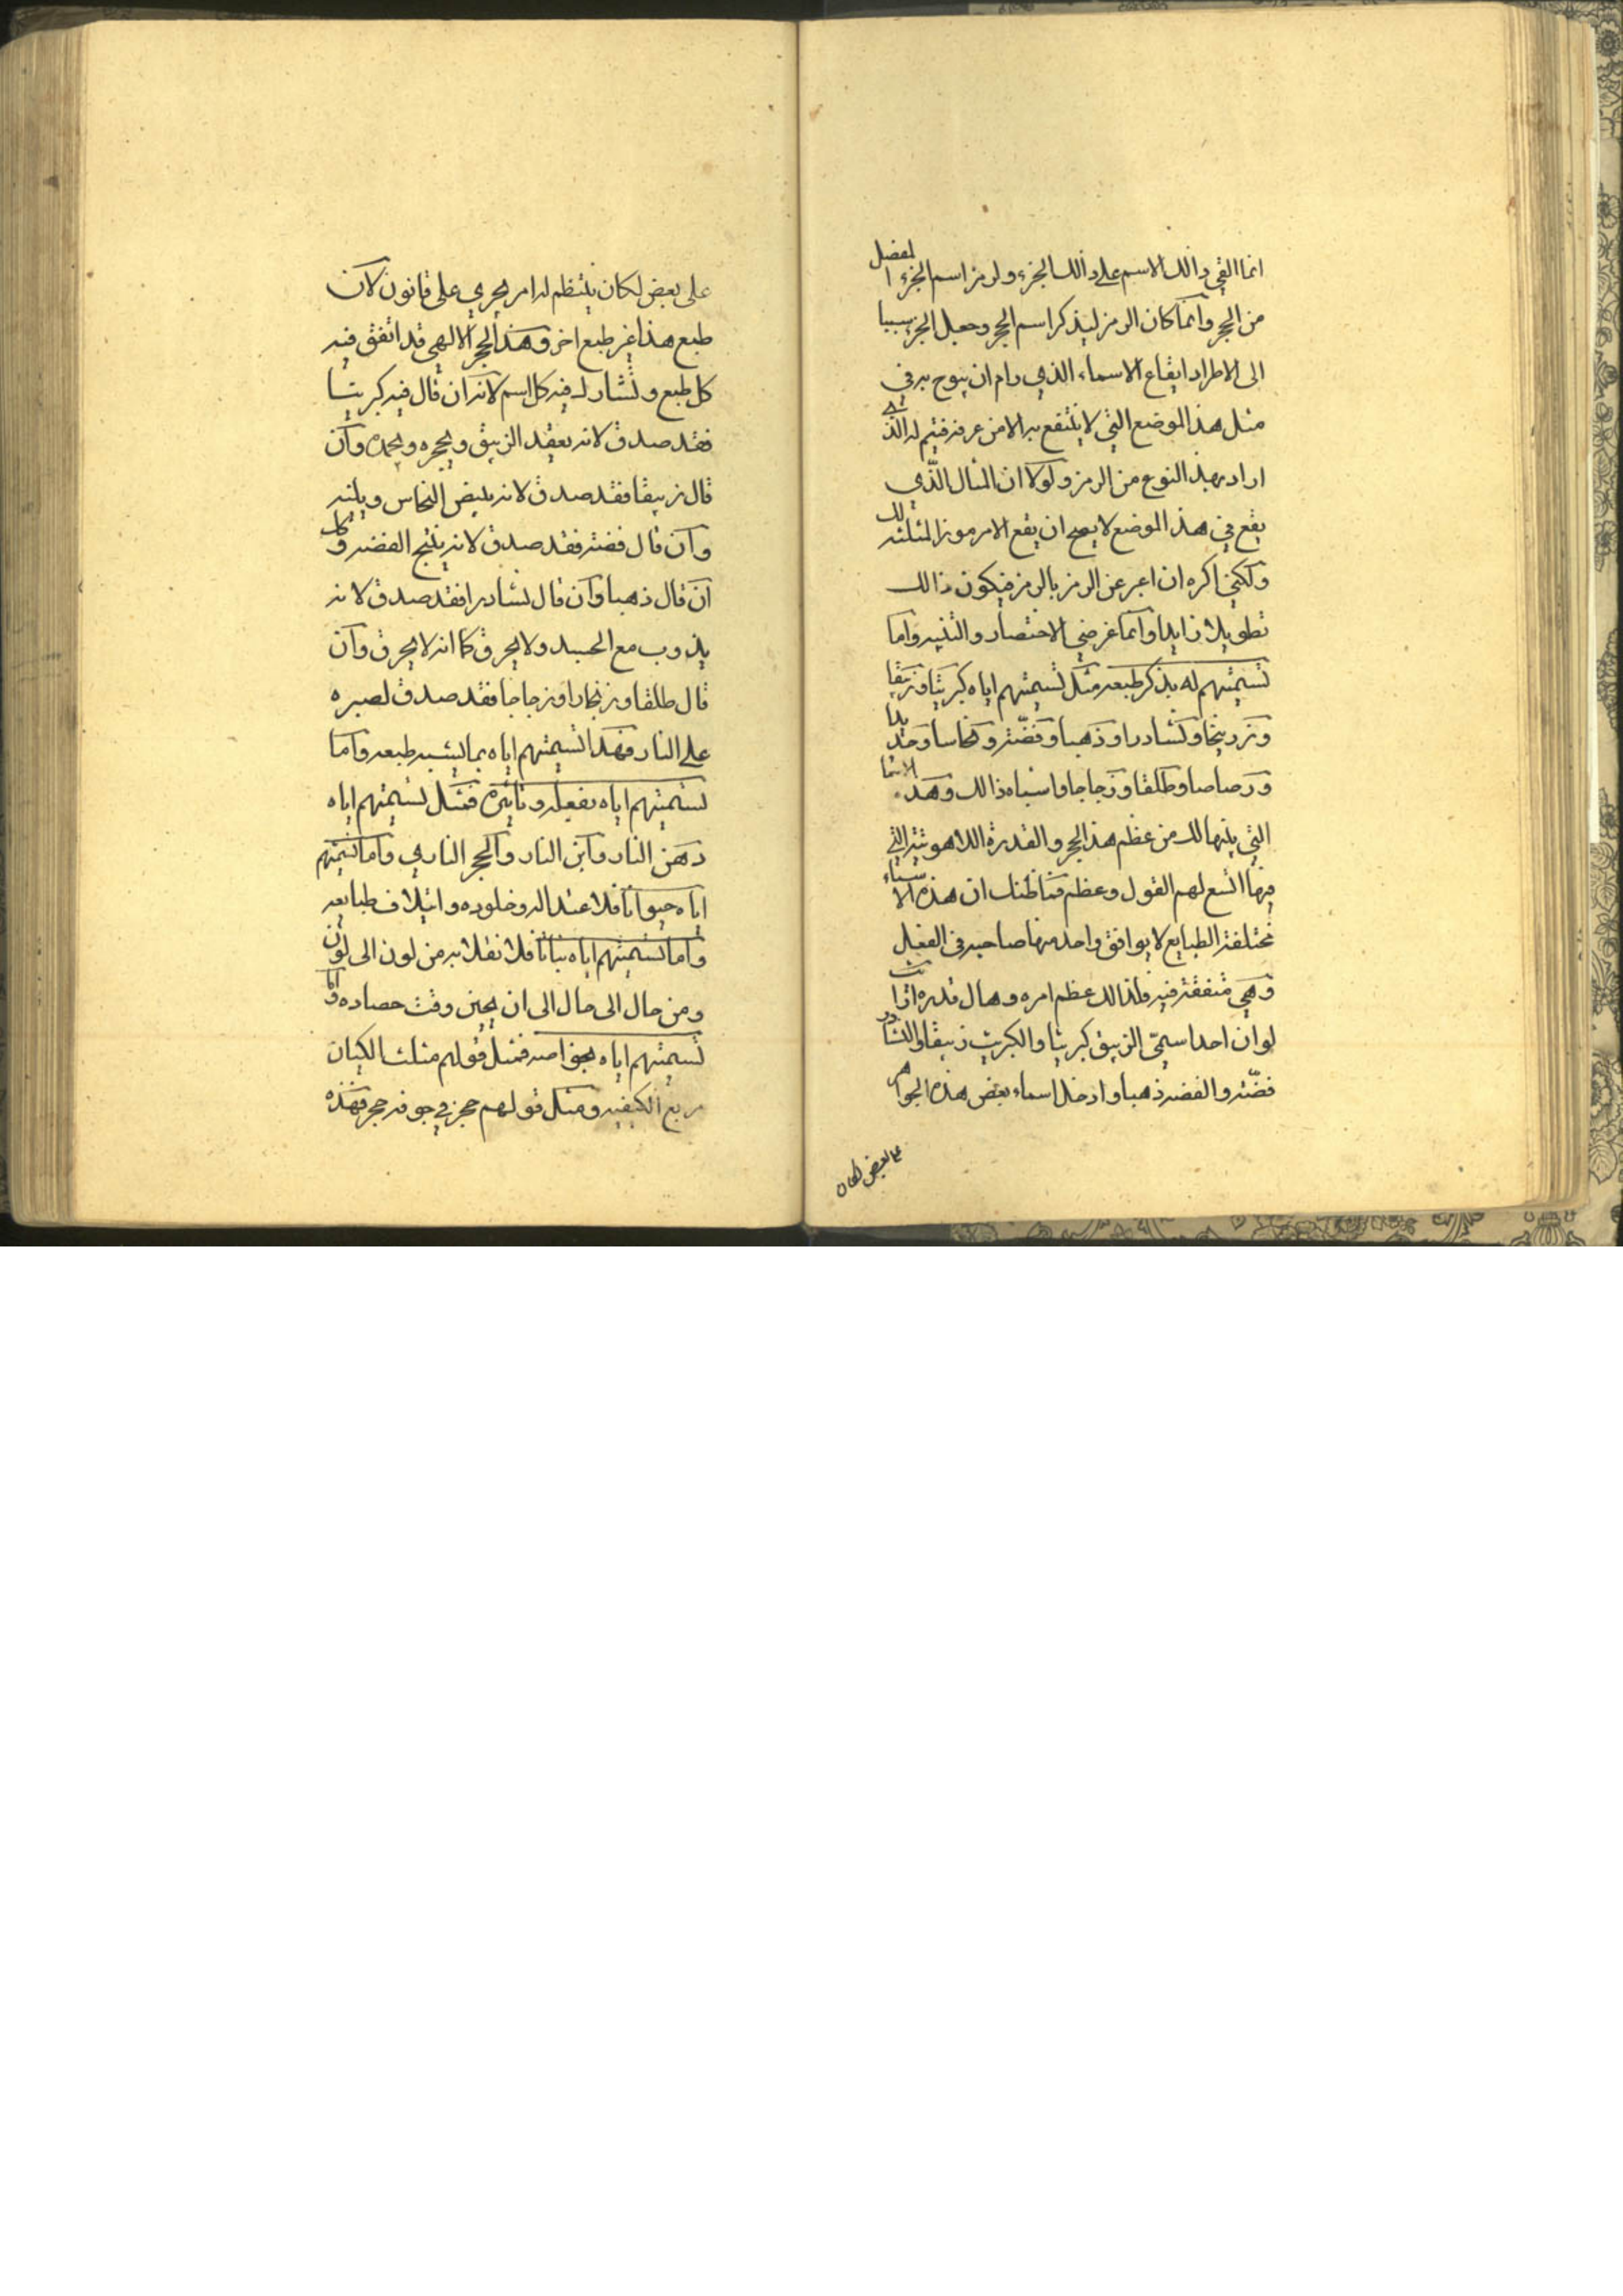 انما القي ذالك الاسم على ذالك الجزء ولرمز اسم الجزء المفصل
من الحجر وانما كان الرمز ليذكر اسم الحجر وجعل الجزء سببا
الى الاطراد ايقاع الاسماء الذي رام ان يبوح به في
مثل هذا الموضع التي لا ينتفع به الا من عرفه فيتم له الذي
اراد بهذا النوع من الرمز ولولا ان المثال الذي
يقع في هذا الموضع لا يصح ان يقع الا مرموزا لمثلته لك
ولكني اكره ان اعبر عن الرمز بالرمز فيكون ذالك
تطويلا زايدا وانما غرضي الاختصار والتنبيه واما
تسميتهم له بذكر طبعه مثل تسميتهم اياه كبريتا وزيبقا
وزرنيخا ونشادرا وذهبا وفضة ونحاسا وحديدا
ورصاصا وطلقا وزجاجا واشباه ذالك وهذه الاسما
التي بينها لك من عظم هذا الحجر والقدرة اللاهوتية التي
فيها اتسع لهم القول وعظم فما ظنك ان هذه الاشياء
مختلفة الطبايع لا يوافق واحد منها صاحبه في الفعل
وهي متفقة فيه فلذالك عظم امره وهال قدره اترا
لو ان احدا سمي الزيبق كبريتا والكبريت زيبقا والنشادر
فضة والفضة ذهبا وادخل اسماء بعض هذه الجواهر
على بعض لكان
على بعض لكان ينتظم له امر يجري على قانون لان
طبع هذا غير طبع اخر وهذا الحجر الالهي قد اتفق فيه
كل طبع وتشارك فيه كل اسم لانه ان قال فيه كبريتا
فقد صدق لانه يعقد الزيبق ويحجره ويجمده وان
قال زيبقا فقد صدق لانه يبيض النحاس ويلينه
وان قال فضة فقد صدق لانه ينتج الفضة وكل
ان قال ذهبا وان قال نشادرا فقد صدق لانه
يذوب مع الجسد ولا يحرق كما انه لا يحرق وان
قال طلقا وزنجارا وزجاجا فقد صدق لصبره
على النار فهذا تسميتهم اياه بما يشبه طبعه واما
تسميتهم اياه بفعله وتاثيره فمثل تسميتهم اياه
دهن النار وابن النار والحجر الناري واما تسميتهم
اياه حيوانا فلاعتداله وخلوده وائتلاف طبايعه
واما تسميتهم اياه نباتا فلانقلابه من لون الى لون
ومن حال الى حال الى ان يحين وقت حصاده واما
تسميتهم اياه بخواصه فمثل قولهم مثلث الكيان
مربع الكيفية ومثل قولهم حجر في جوفه حجر فهذه